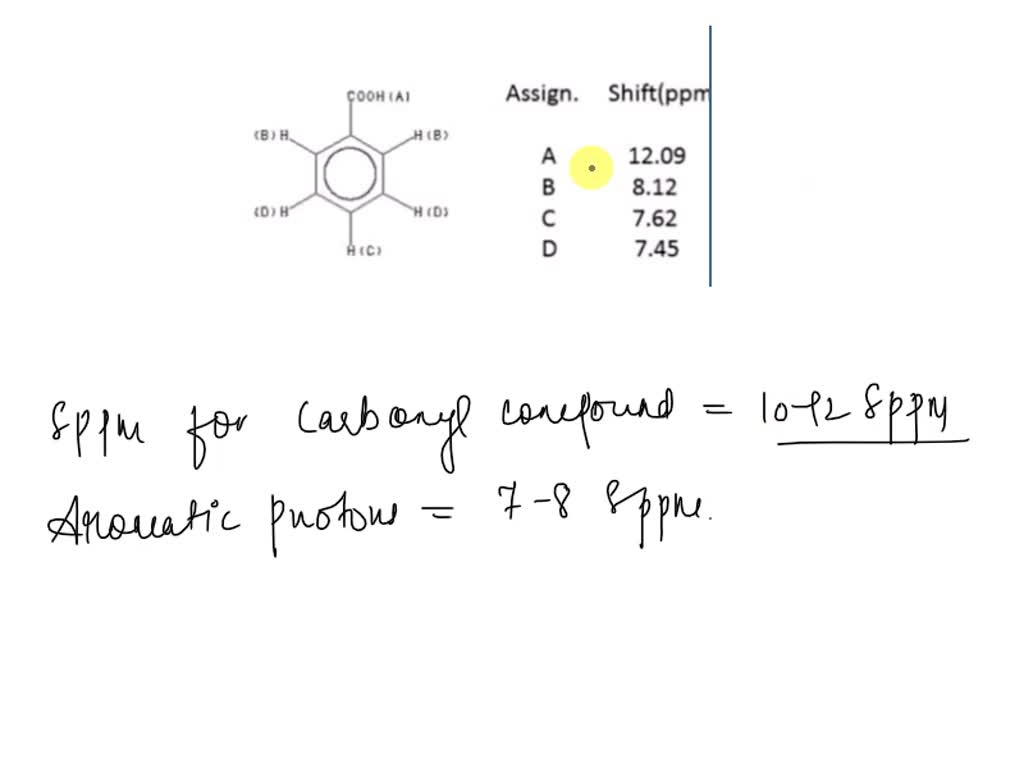 COOH(A)
(B)H H(B)
(D)H H(D)
H(C)
Assign. Shift(ppm
A 12.09
B 8.12
C 7.62
D 7.45
δppm for Carbonyl compound = 10-12 δppm
Aromatic protons = 7-8 δppm.